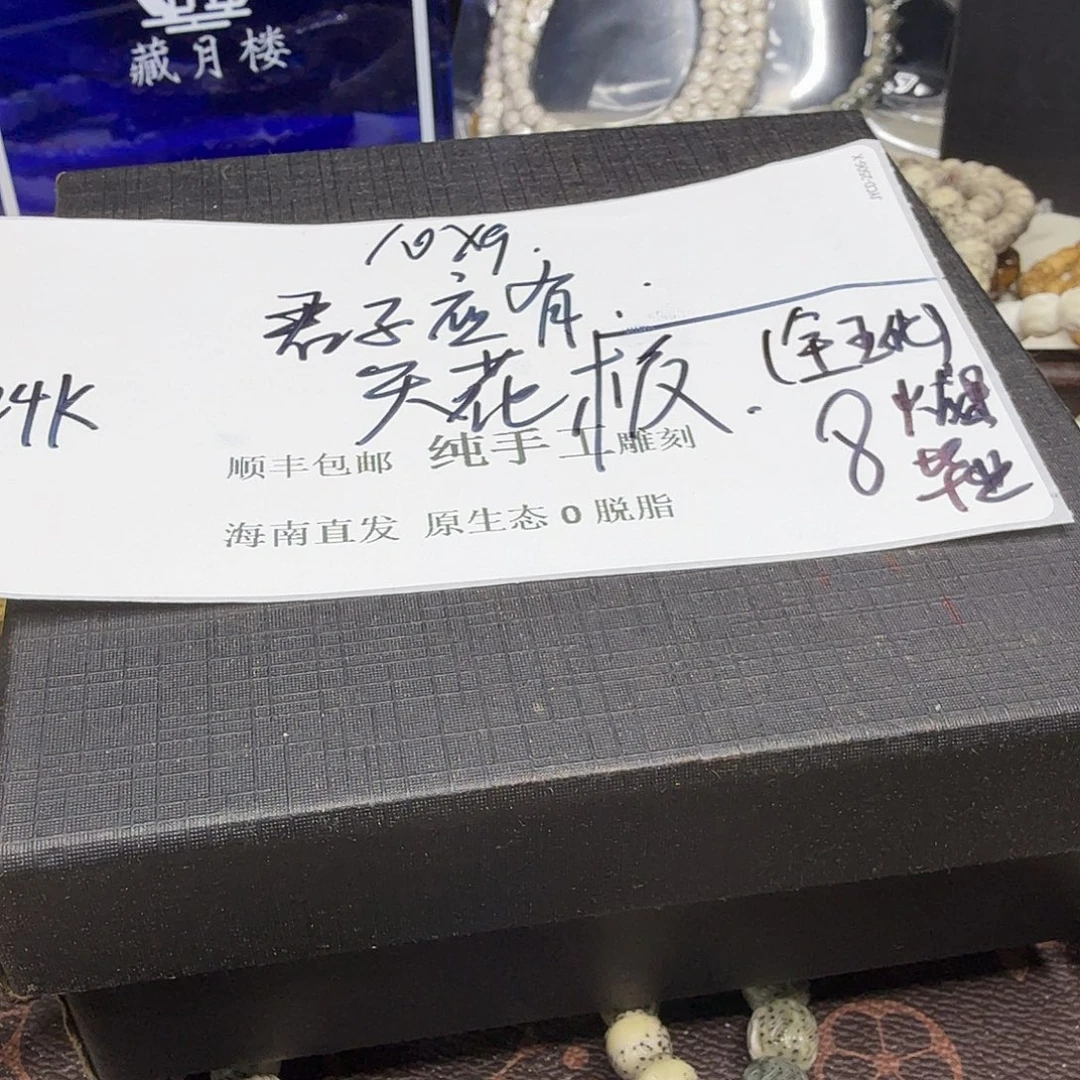 藏月楼
JYCD-2506-X
10X9.
君子应有.
天花板.
(全玉化)
8
毕业
24K
顺丰包邮 纯手工雕刻
海南直发 原生态0脱脂